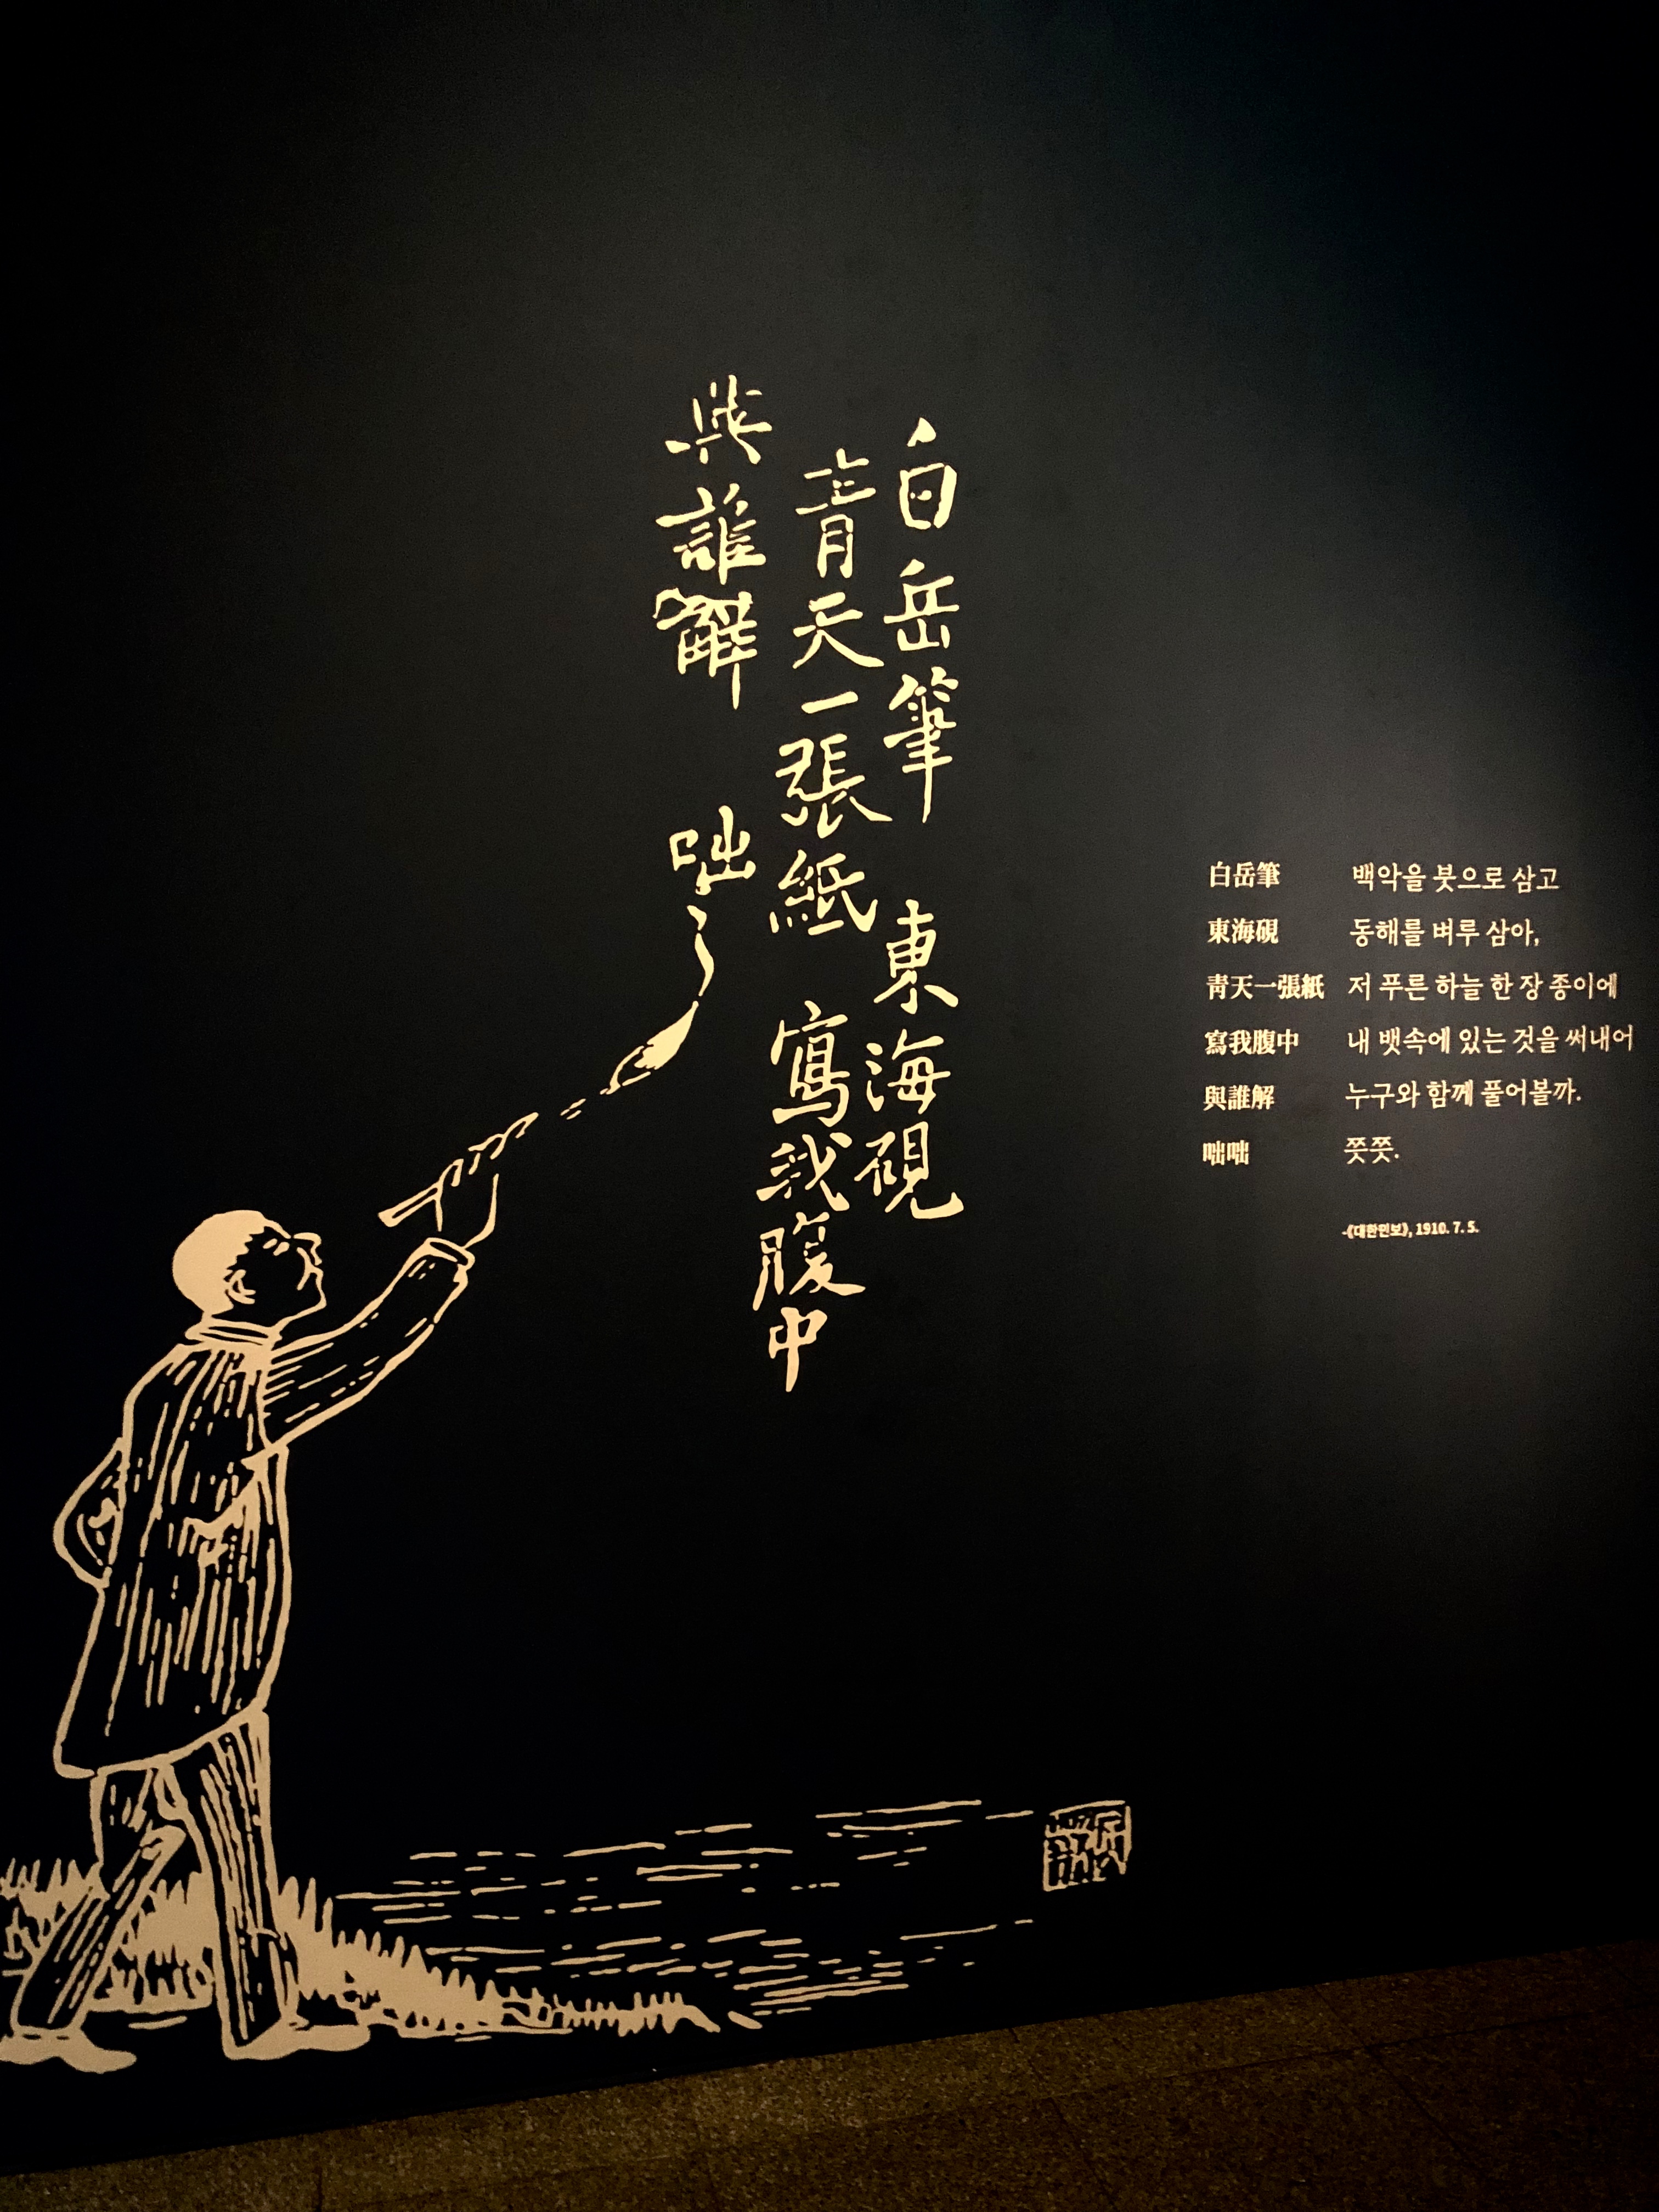 白岳筆 東海硯
靑天一張紙 寫我腹中
與誰解 咄〻
白岳筆 백악을 붓으로 삼고
東海硯 동해를 벼루 삼아,
靑天一張紙 저 푸른 하늘 한 장 종이에
寫我腹中 내 뱃속에 있는 것을 써내어
與誰解 누구와 함께 풀어볼까.
咄咄 쯧쯧.
-《대한민보》, 1910. 7. 5.